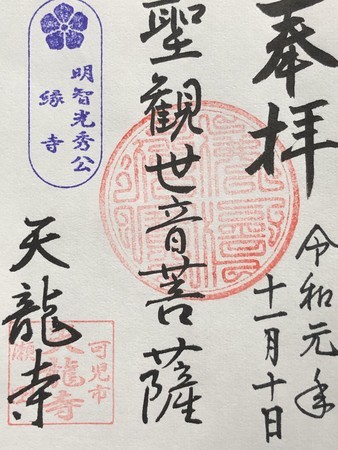 奉拝
令和元年
十一月十日
聖観世音菩薩
明智光秀公
縁寺
天龍寺
可児市
天龍寺